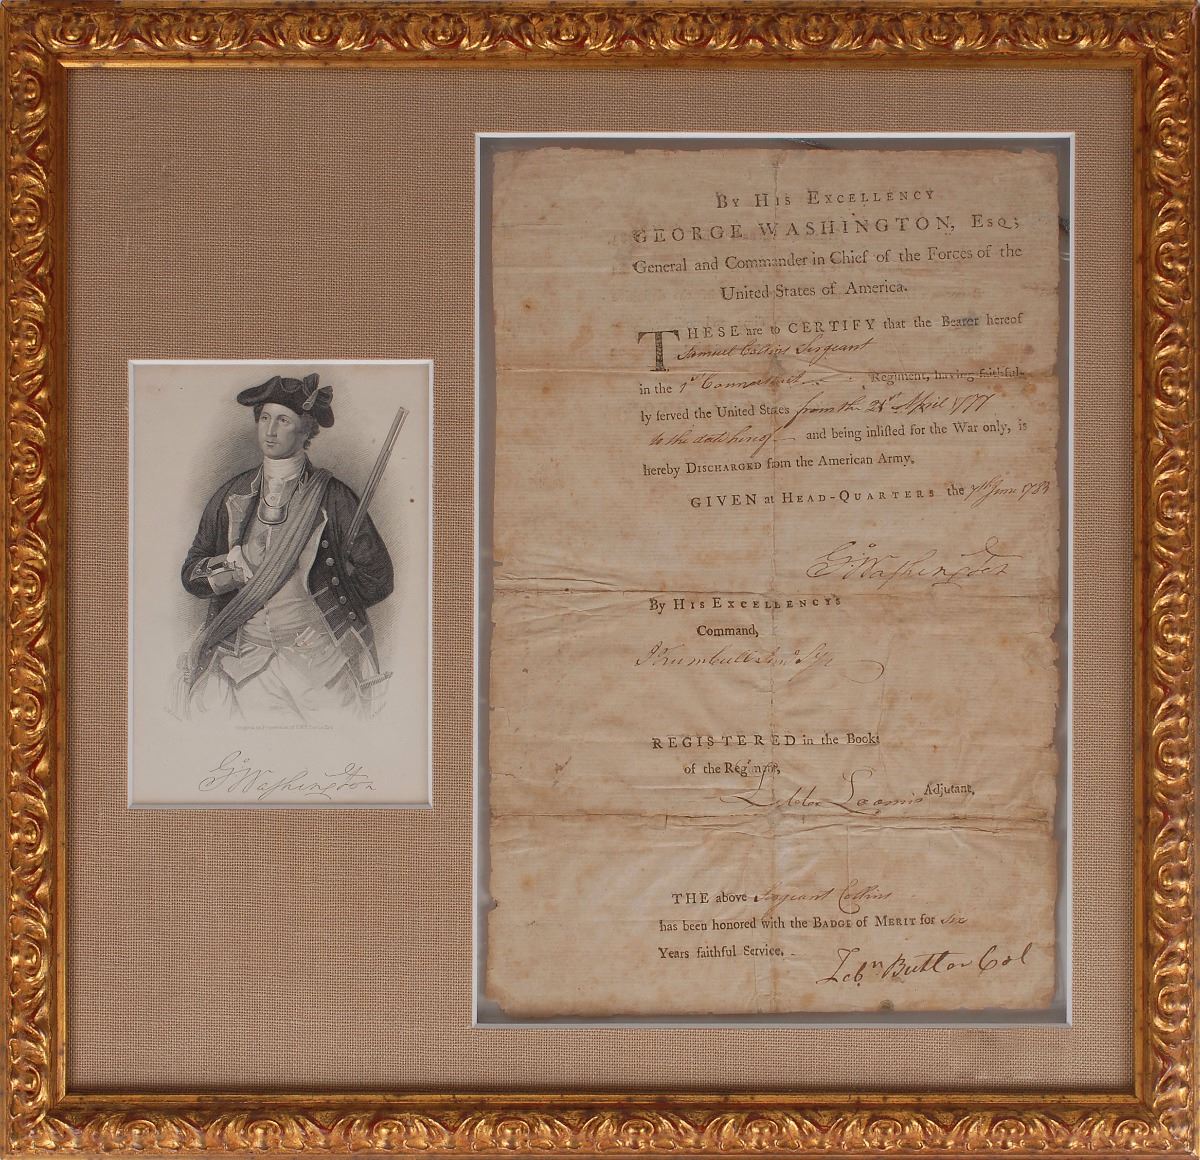 By His Excellency
GEORGE WASHINGTON, Esq;
General and Commander in Chief of the Forces of the
United States of America.
THESE are to CERTIFY that the Bearer hereof
Samuel Collins Sergeant
in the 1st Connecticut Regiment, having faithful-
ly served the United States from the 21st April 1777
to the date hereof and being inlisted for the War only, is
hereby Discharged from the American Army.
GIVEN at Head-Quarters the 7th June 1783
Go Washington
By His Excellency's
Command,
J Trumbull Junr Sy
REGISTERED in the Books
of the Regiment,
Loomis Adjutant,
THE above Sergeant Collins
has been honored with the Badge of Merit for six
Years faithful Service.
Zebn Butler Col
Go Washington